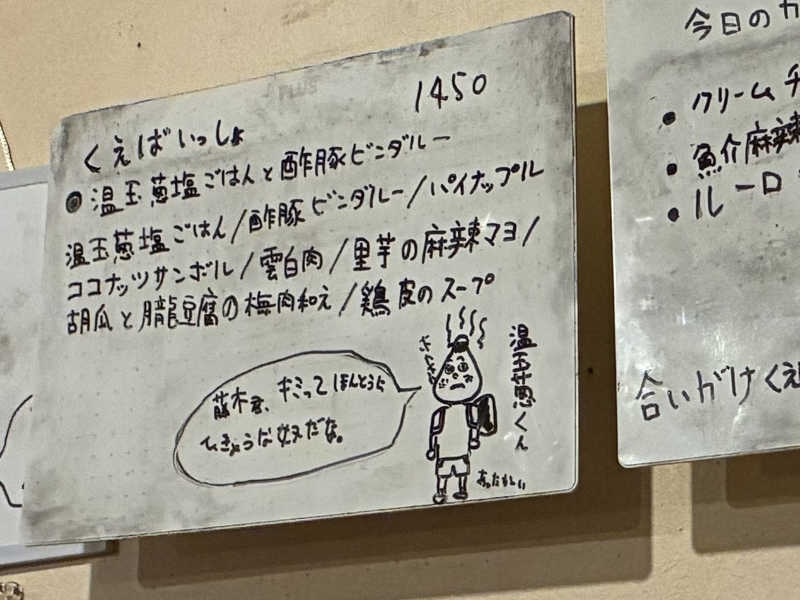 PLUS
1450
くえばいっしょ
● 温玉葱塩ごはんと酢豚ビンダルー
温玉葱塩ごはん/酢豚ビンダルー/パイナップル
ココナッツサンボル/雲白肉/里芋の麻辣マヨ/
胡瓜と朧豆腐の梅肉和え/鶏皮のスープ
藤木君、キミってほんとうに
ひきょうな奴だな。
温玉葱くん
あったかい
今日のカ
● クリームチ
● 魚介麻辣
● ルーロ
合いがけくえ